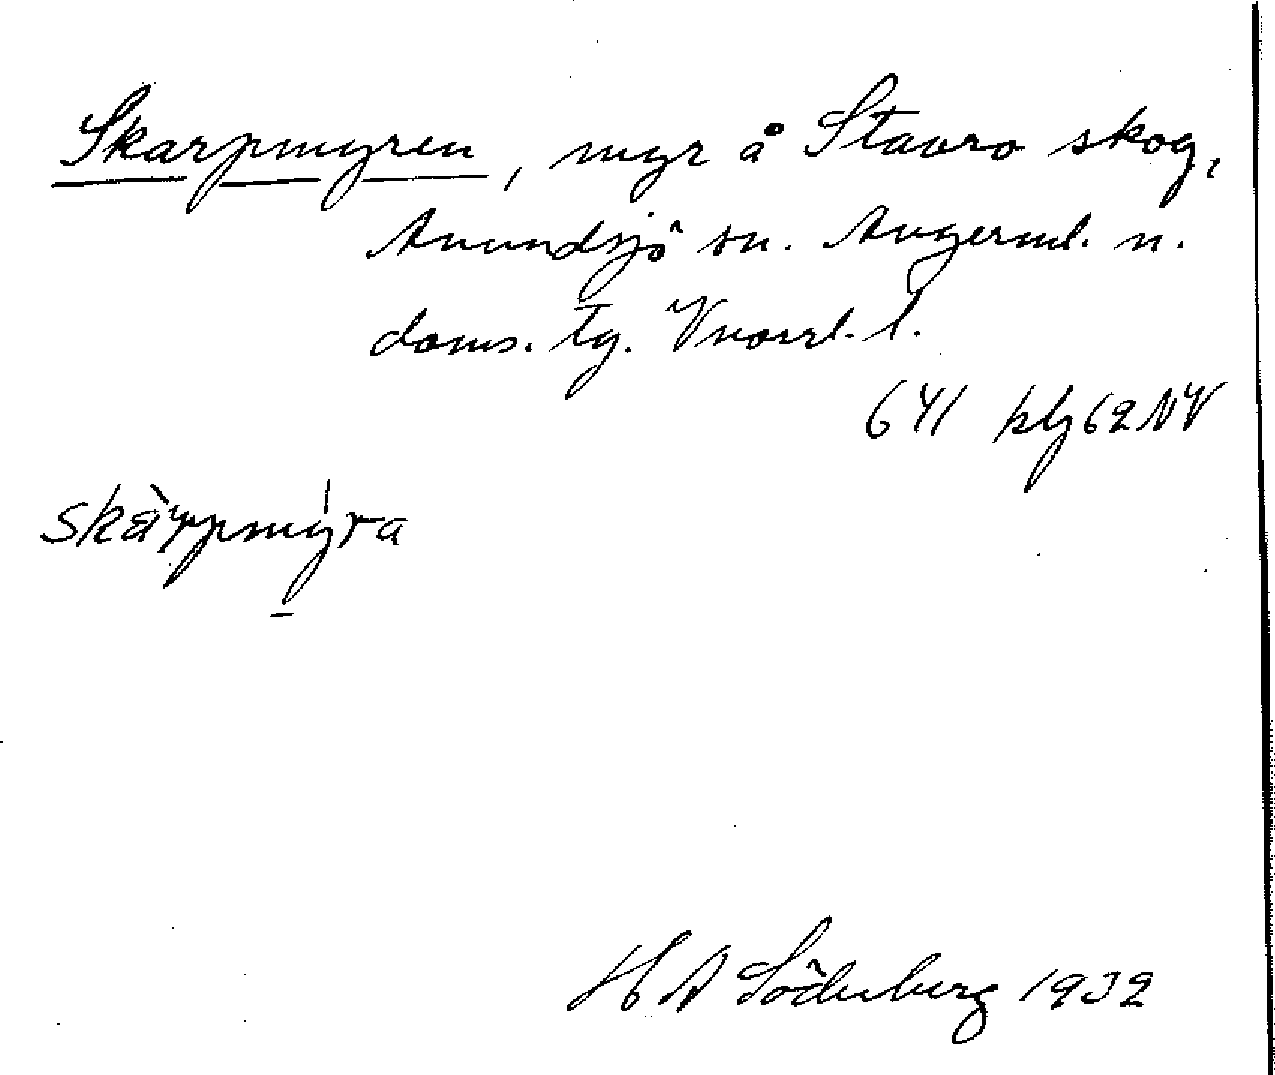 Skarpmyren, myr å Stavro skog,
Anundsjö sn. Ångerml. n.
doms. tg. Vnorrl. l.
641 klz 62 NV
skàrpmýra
H A Söderberg 1932